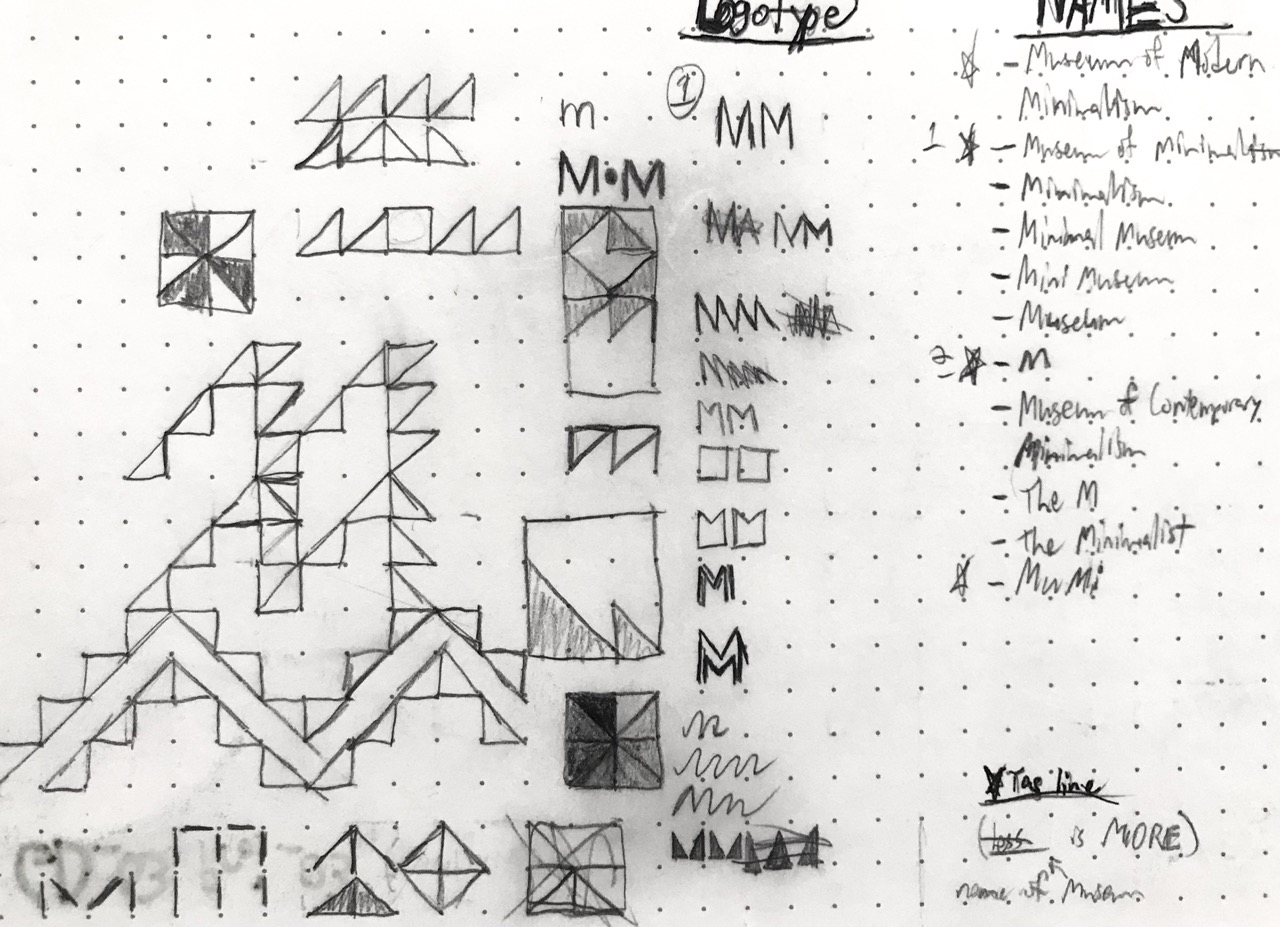 Logotype
1
m
MM
M•M
MM
MM
M
M
NAMES
- Museum of Modern
Minimalism
1 - Museum of Minimalism
- Minimalism
- Minimal Museum
- Mini Museum
- Museum
2 - M
- Museum of Contemporary
Minimalism
- The M
- The Minimalist
- MuMi
Tag line
(less is MORE)
name of Museum